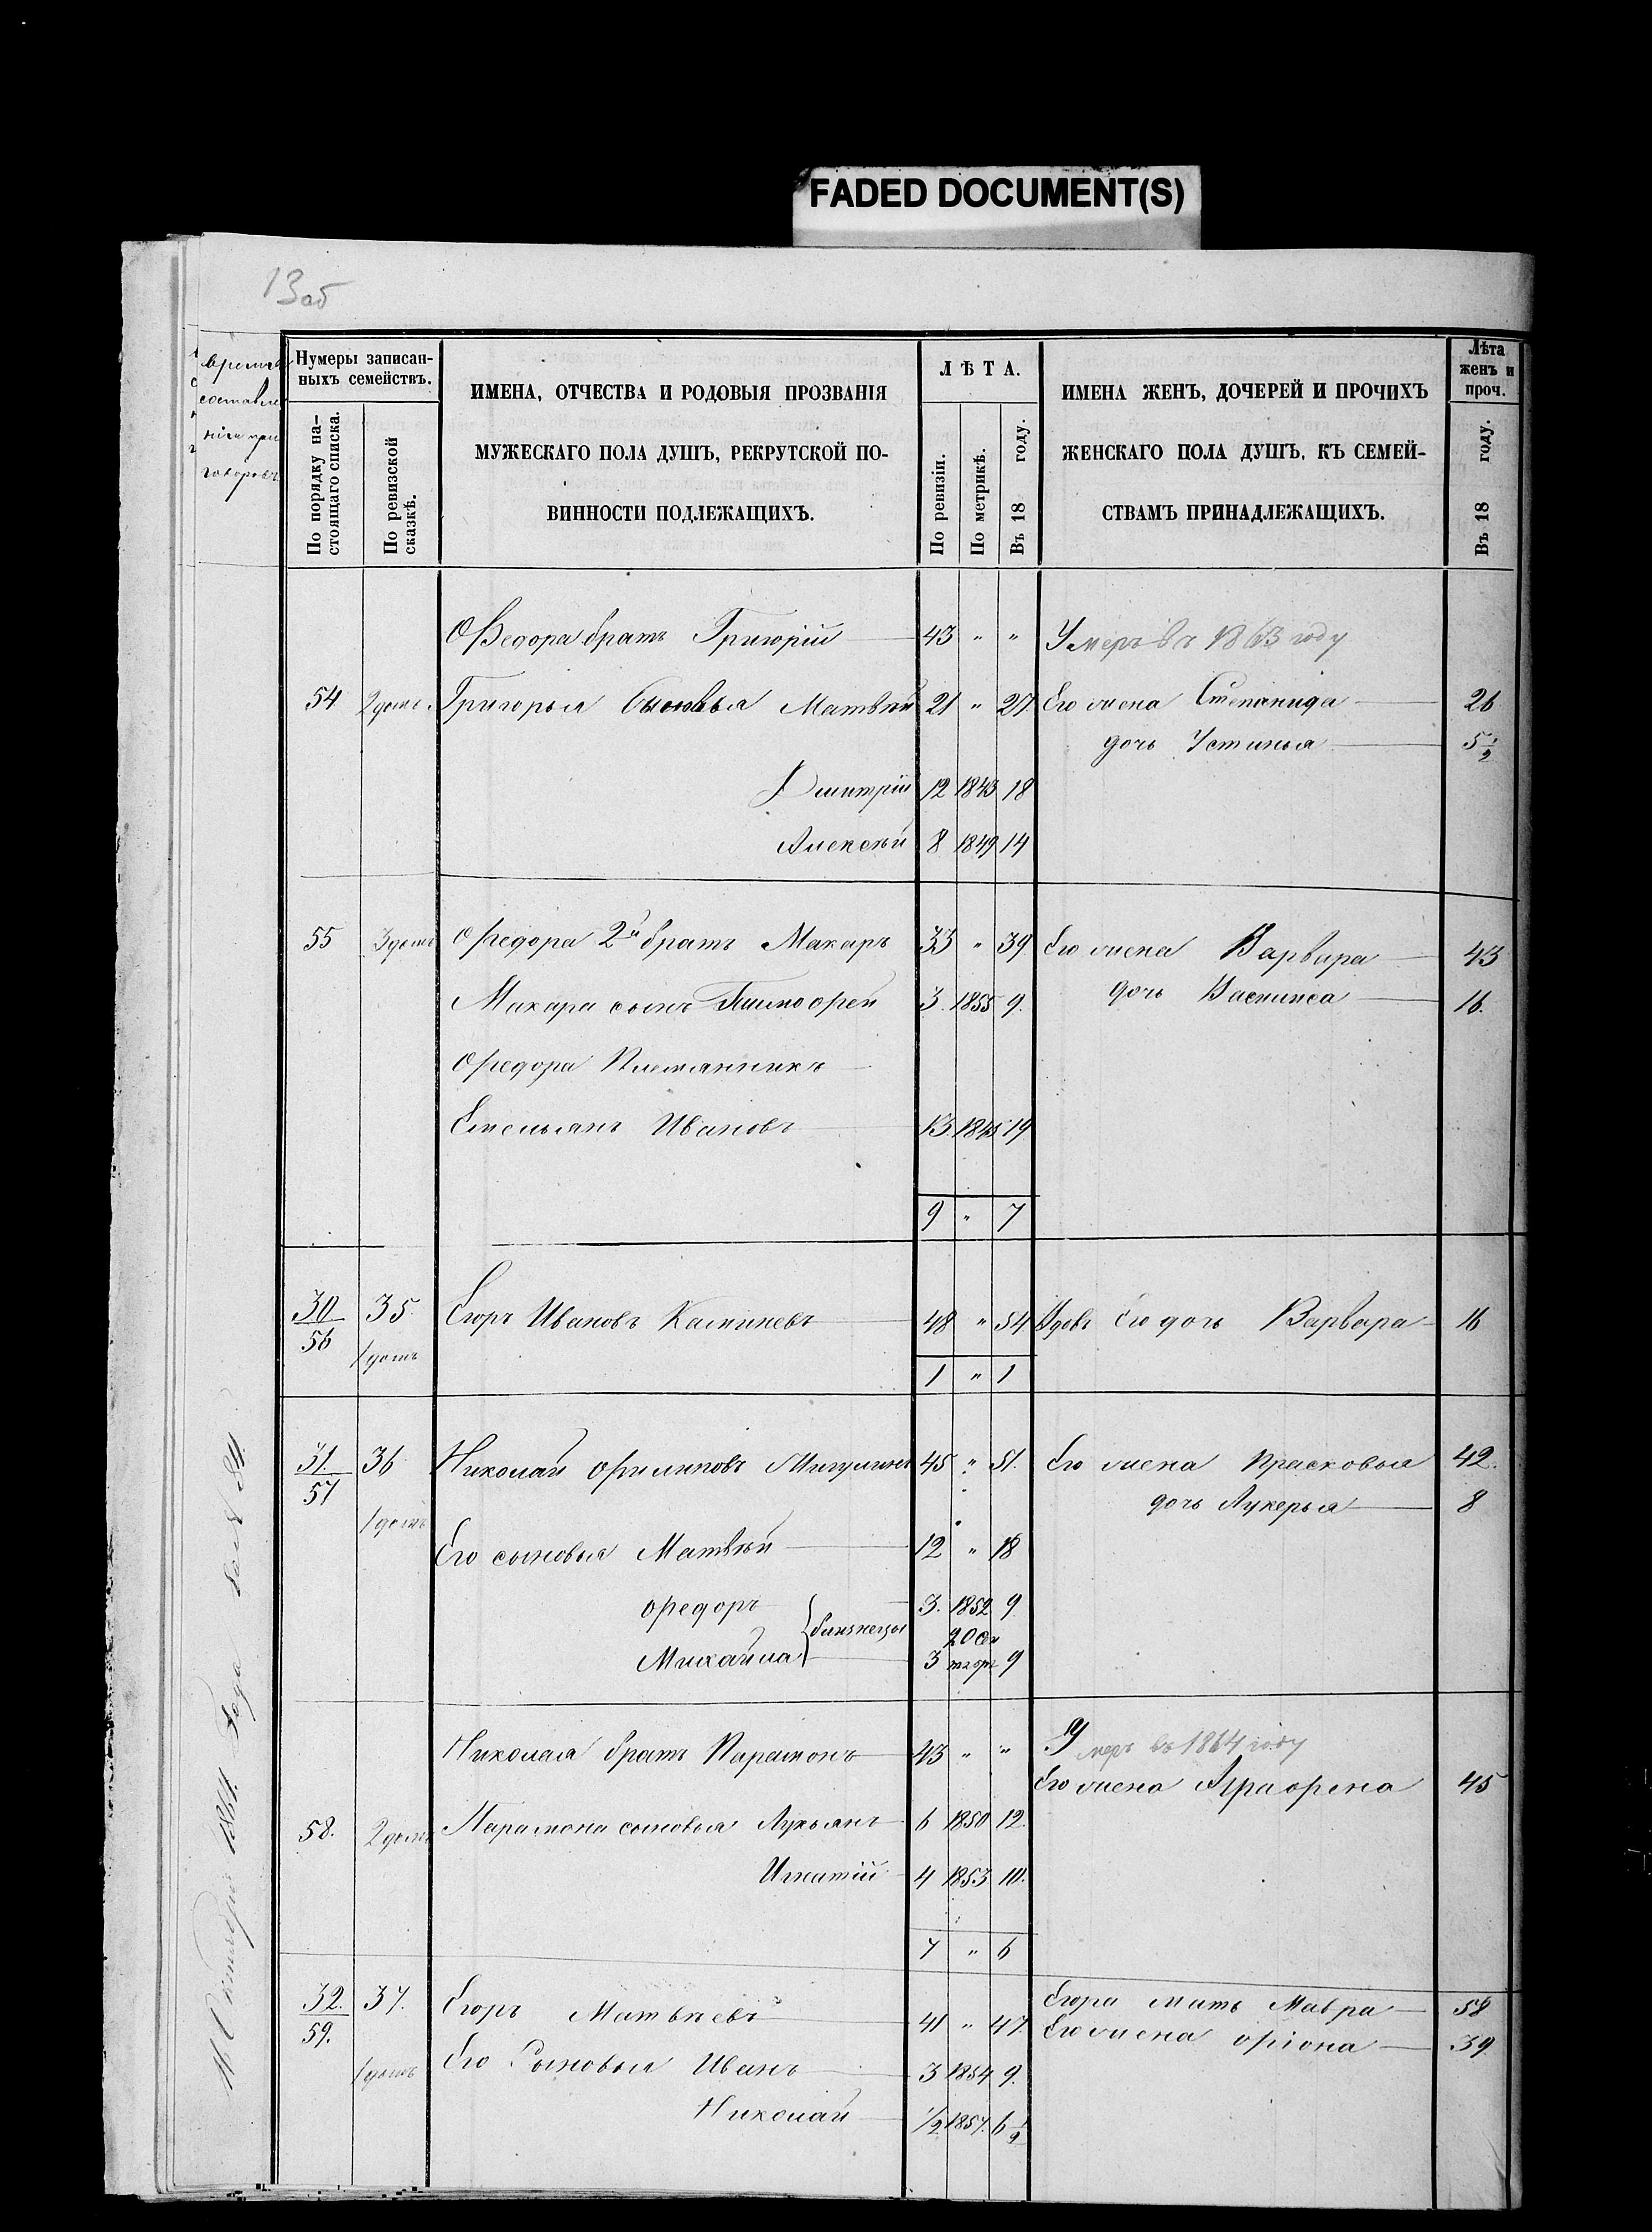 FADED DOCUMENT(S)
13об
Нумеры записан-
ныхъ семействъ.
По порядку на-
стоящаго списка.
По ревизской
сказкѣ.
ИМЕНА, ОТЧЕСТВА И РОДОВЫЯ ПРОЗВАНІЯ
МУЖЕСКАГО ПОЛА ДУШЪ, РЕКРУТСКОЙ ПО-
ВИННОСТИ ПОДЛЕЖАЩИХЪ.
ЛѢТА.
По ревизіи.
По метрикѣ.
Въ 18 году.
ИМЕНА ЖЕНЪ, ДОЧЕРЕЙ И ПРОЧИХЪ
ЖЕНСКАГО ПОЛА ДУШЪ, КЪ СЕМЕЙ-
СТВАМЪ ПРИНАДЛЕЖАЩИХЪ.
Лѣта
женъ и
проч.
Въ 18 году.
время
составле
нія при
говоровъ
Ѳедора братъ Григорій 43 " " Умеръ въ 1863 году
54 2 домъ. Григорья Сыновья Матвѣй 21 " 27 Его жена Степанида 26
дочь Устинья 5 1/2
Дмитрій 12 1843 18
Алексѣй 8 1849 14
55 3 домъ Федора 2й братъ Макаръ 33 " 39 Его жена Варвара 43
Макара сынъ Тимофей 3. 1855 9. дочь 16.
Федора Племянникъ
Емельянъ Ивановъ 13 1845 19
9 " 7
30/56 35. 1 домъ Егоръ Ивановъ 48 " 54 Вдовъ Его дочь Варвара 16
1 " 1
31./57 36 1 домъ Николай Филиповъ 45 " 51. Его жена Прасковья 42.
дочь Лукерья 8
Его сыновья Матвѣй 12 " 18
Федоръ 3. 1852 9
близнецы 20 Сен
Михайла 3 тября 9
Николая братъ Парамонъ 43 " " Умеръ въ 1864 году
Его жена Аграфена 45
58. 2 домъ Парамона сыновья Лукьянъ 6 1850 12.
Игнатій 4 1853 10.
7 " 6
32./59. 37. 1 домъ Егоръ Матвѣевъ 41 " 47. Егора мать Мавра 58
Его жена Фіона 39
Его Сыновья Иванъ 3 1854 9.
Николай 1/2 1857. 6 1/2
1864 Года